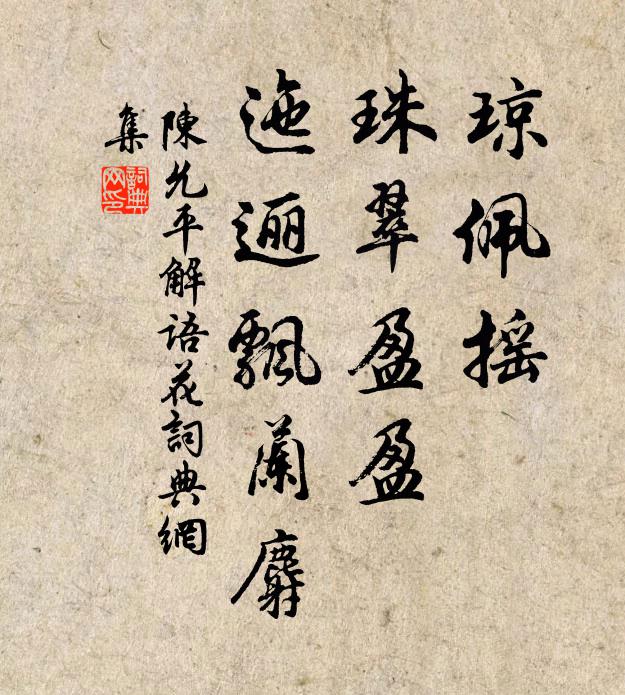 琼佩摇
珠翠盈盈
迤逦飘兰麝
陳允平解語花詞典網
集
詞典
网印